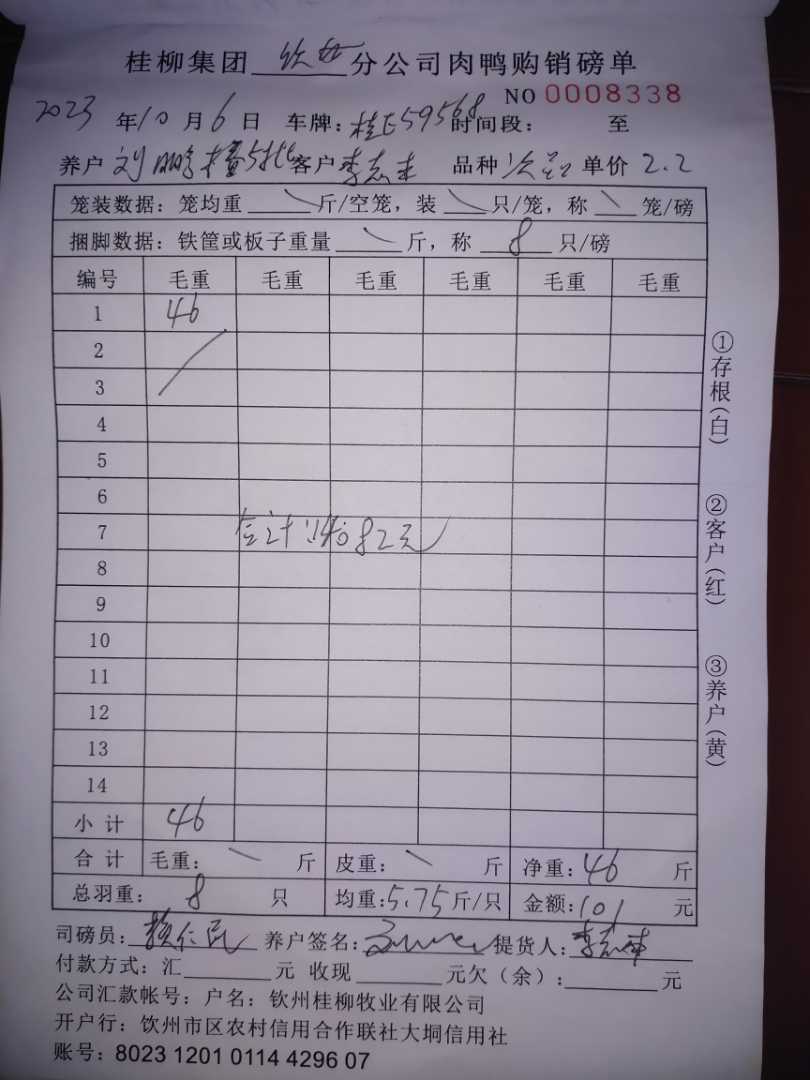 桂柳集团 钦州 分公司肉鸭购销磅单
NO 0008338
2023 年 10 月 6 日 车牌：桂E59568 时间段： 至
养户 刘鹏 客户 李志 品种 次品 单价 2.2
笼装数据：笼均重 斤/空笼，装 只/笼，称 笼/磅
捆脚数据：铁筐或板子重量 斤，称 8 只/磅
编号 毛重 毛重 毛重 毛重 毛重 毛重
1 46
2
3
4
5
6
7 合计：14082元
8
9
10
11
12
13
14
小计 46
合计 毛重： 斤 皮重： 斤 净重：46 斤
总羽重： 8 只 均重：5.75斤/只 金额：101 元
司磅员： 养户签名： 提货人：李志
付款方式：汇 元 收现 元欠（余）： 元
公司汇款帐号：户名：钦州桂柳牧业有限公司
开户行：钦州市区农村信用合作联社大垌信用社
账号：8023 1201 0114 4296 07
①存根（白）
②客户（红）
③养户（黄）